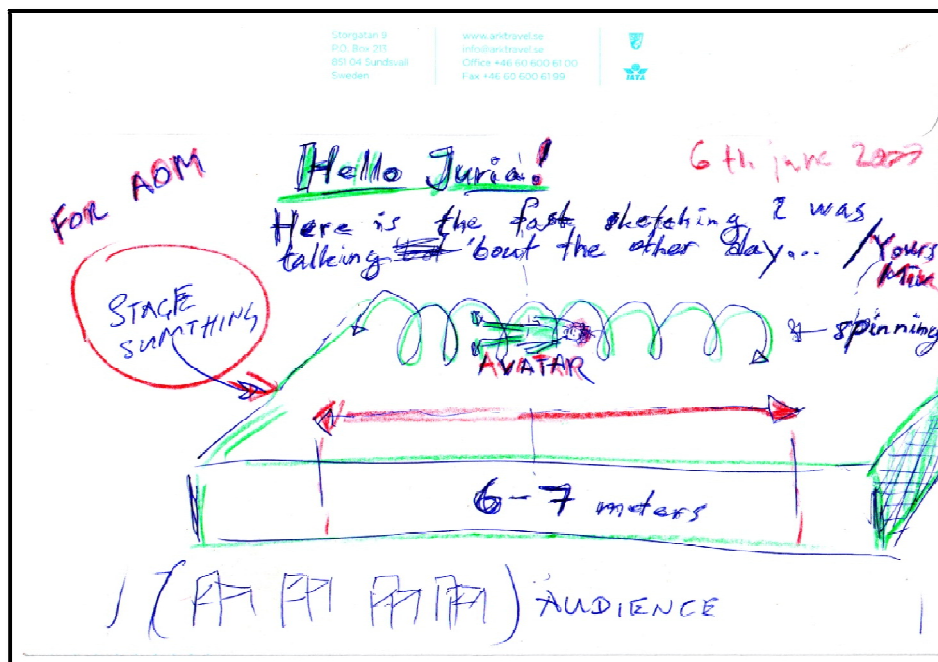 Storgatan 9
P.O. Box 211
851 04 Sundsvall
Sweden
www.arktravel.se
info@arktravel.se
Office +46 60 600 61 00
Fax +46 60 600 61 99
IATA
FOR ADM
Hello Juria!
6th june
Here is the fast sketching I was
talking 'bout the other day... /Yours
STAGE
SUMTHING
spinning
AVATAR
6-7 meters
AUDIENCE